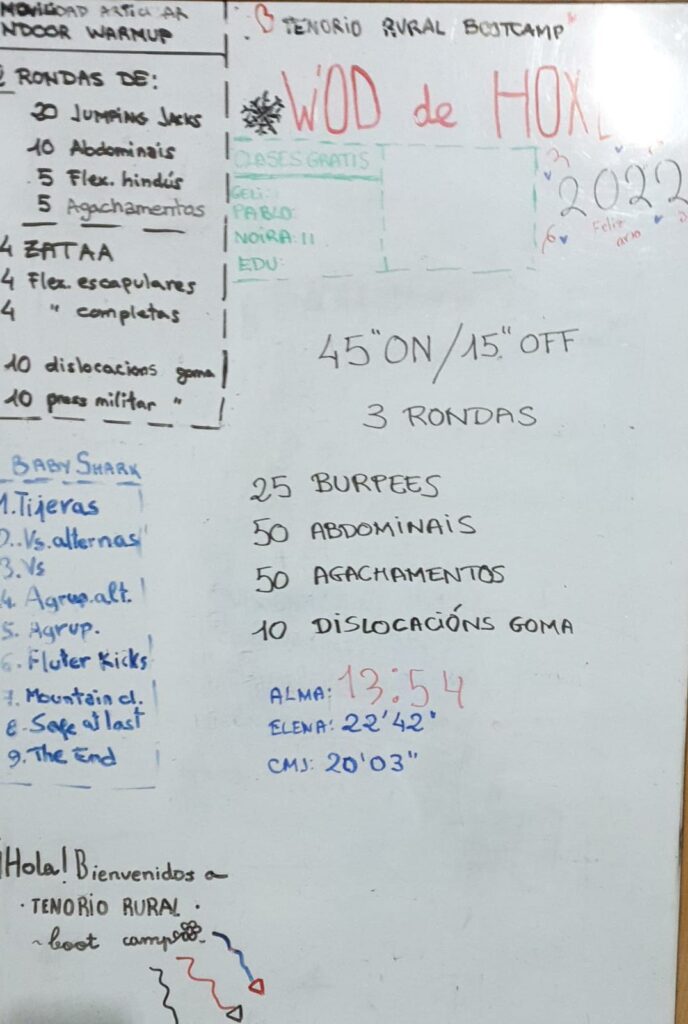 MOVILIDAD ARTICULAR
INDOOR WARMUP
2 RONDAS DE:
20 JUMPING JACKS
10 Abdominais
5 Flex. hindús
5 Agachamentos
4 ZATAA
4 Flex. escapulares
4 " completas
10 dislocacions goma
10 press militar "
BABY SHARK
1. Tijeras
2. Vs. alternas
3. Vs
4. Agrup. alt.
5. Agrup.
6. Fluter Kicks
7. Mountain cl.
8. Safe at last
9. The End
¡Hola! Bienvenidos a
· TENORIO RURAL ·
~ boot camp
TENORIO RURAL BOOTCAMP
WOD de HOXE
CLASES GRATIS
GELI:
PABLO:
NOIRA: II
EDU:
2022
Feliz
ano
45" ON / 15" OFF
3 RONDAS
25 BURPEES
50 ABDOMINAIS
50 AGACHAMENTOS
10 DISLOCACIÓNS GOMA
ALMA: 13:54
ELENA: 22'42"
CMJ: 20'03"